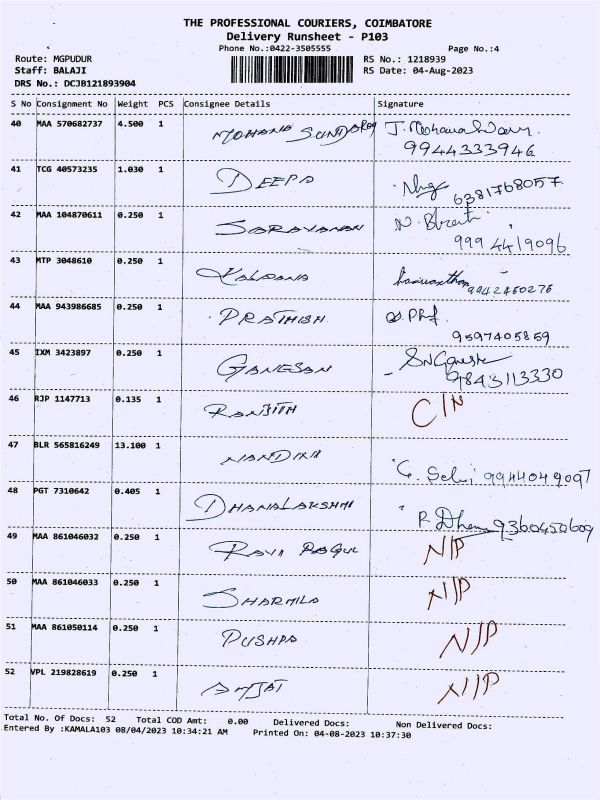 THE PROFESSIONAL COURIERS, COIMBATORE
Delivery Runsheet - P103
Phone No.:0422-3505555 Page No.:4
Route: MGPUDUR RS No.: 1218939
Staff: BALAJI RS Date: 04-Aug-2023
DRS No.: DCJB121893904
S No Consignment No Weight PCS Consignee Details Signature
40 MAA 570682737 4.500 1 MOHANA SUNDARAM
9944333946
41 TCG 40573235 1.030 1 DEEPA
6381768057
42 MAA 104870611 0.250 1 SARAVANAN
9994419096
43 MTP 3048610 0.250 1 KALPANA
9942460276
44 MAA 943986685 0.250 1 PRATHISH
9597405859
45 IXM 3423897 0.250 1 GANESAN SN Ganesh
9843113330
46 RJP 1147713 0.135 1 RANJITH C/N
47 BLR 565816249 13.100 1 NANDINI
G. Selvi 9944049097
48 PGT 7310642 0.405 1 DHANALAKSHMI
9360450609
49 MAA 861046032 0.250 1 RAVI N/P
50 MAA 861046033 0.250 1 SHARMILA N/P
51 MAA 861050114 0.250 1 PUSHPA N/P
52 VPL 219828619 0.250 1 N/P
Total No. Of Docs: 52 Total COD Amt: 0.00 Delivered Docs: Non Delivered Docs:
Entered By :KAMALA103 08/04/2023 10:34:21 AM Printed On: 04-08-2023 10:37:30